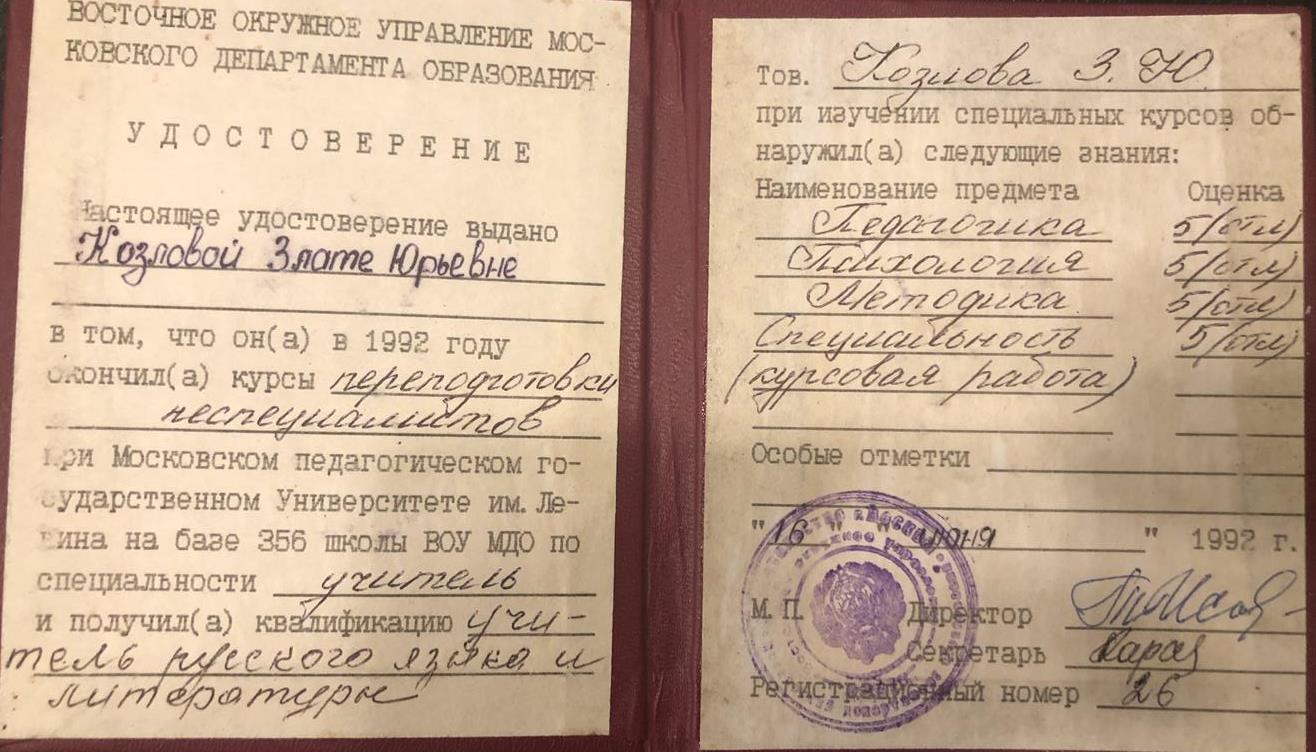 ВОСТОЧНОЕ ОКРУЖНОЕ УПРАВЛЕНИЕ МОС-
КОВСКОГО ДЕПАРТАМЕНТА ОБРАЗОВАНИЯ
УДОСТОВЕРЕНИЕ
Настоящее удостоверение выдано
Козловой Злате Юрьевне
в том, что он(а) в 1992 году
окончил(а) курсы переподготовки
неспециалистов
при Московском педагогическом го-
сударственном Университете им. Ле-
нина на базе 356 школы ВОУ МДО по
специальности учитель
и получил(а) квалификацию учи-
тель русского языка и
литературы
Тов. Козлова З. Ю.
при изучении специальных курсов об-
наружил(а) следующие знания:
Наименование предмета Оценка
Педагогика 5/отл)
Психология 5/отл)
Методика 5/отл)
Специальность 5/отл)
(курсовая работа)
Особые отметки
"16" " июня " 1992 г.
М. П. Директор
Секретарь
Регистрационный номер 26